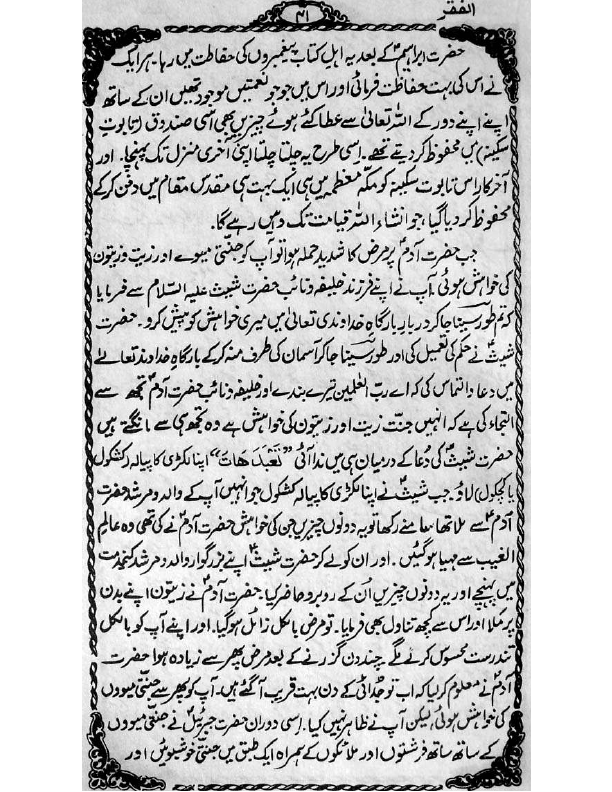 الفقر
۴۱
حضرت ابراہیمؑ کے بعد یہ اہل کتاب پیغمبروں کی حفاظت میں رہا۔ ہر ایک
نے اس کی بہت حفاظت فرمائی اور اس میں جو جو نعمتیں موجود تھیں ان کے ساتھ
اپنے اپنے دور کے اللہ تعالیٰ سے عطا کئے ہوئے چیزیں بھی اسی صندوق (تابوت
سکینہ) میں محفوظ کر دیتے تھے۔ اسی طرح یہ چلتا چلتا اپنی آخری منزل تک پہنچا۔ اور
آخر کار اس تابوت سکینہ کو مکہ معظمہ میں ہی ایک بہت ہی مقدس مقام میں دفن کر کے
محفوظ کر دیا گیا، جو انشاء اللہ قیامت تک وہیں رہے گا۔
جب حضرت آدمؑ پر مرض کا شدید حملہ ہوا تو آپ کو جنتی میوے اور زیت و زیتون
کی خواہش ہوئی۔ آپ نے اپنے فرزند خلیفہ و نائب حضرت شیث علیہ السلام سے فرمایا
کہ تم طور سینا جا کر دربار بارگاہِ خداوندی تعالیٰ میں میری خواہش کو پیش کرو۔ حضرت
شیثؑ نے حکم کی تعمیل کی اور طور سینا جا کر آسمان کی طرف منہ کر کے بارگاہِ خداوند تعالےٰ
میں دعا و التماس کی کہ اے رب العٰلمین تیرے بندے اور خلیفہ و نائب حضرت آدمؑ تجھ سے
التجاء کی ہے کہ انہیں جنت زیت اور زیتون کی خواہش ہے وہ تجھ ہی سے مانگتے ہیں
حضرت شیثؑ کی دُعا کے درمیان ہی میں ندا آئی "نَعْبُدَ هَاتَ" اپنا لکڑی کا پیالہ (کشکول
یا کچکول) لاؤ۔ جب شیثؑ نے اپنا لکڑی کا پیالہ کشکول جو انہیں آپ کے والد و مرشد حضرت
آدمؑ سے ملا تھا سامنے رکھا تو یہ دونوں چیزیں جن کی خواہش حضرت آدمؑ نے کی تھی وہ عالم
الغیب سے مہیا ہو گئیں۔ اور ان کو لے کر حضرت شیثؑ اپنے بزرگوار والد و مرشد کی خدمت
میں پہنچے اور یہ دونوں چیزیں اُن کے روبرو حاضر کیا۔ حضرت آدمؑ نے زیتون اپنے بدن
پر مَلا اور اس سے کچھ تناول بھی فرمایا۔ تو مرض بالکل زائل ہو گیا۔ اور اپنے آپ کو بالکل
تندرست محسوس کرنے لگے۔ چند دن گزرنے کے بعد مرض پھر سے زیادہ ہوا حضرت
آدمؑ نے معلوم کر لیا کہ اب تو جُدائی کے دن بہت قریب آ گئے ہیں۔ آپ کو پھر سے جنتی میووں
کی خواہش ہوئی لیکن آپ نے ظاہر نہیں کیا۔ اسی دوران حضرت جبرئیلؑ نے جنتی میووں
کے ساتھ ساتھ فرشتوں اور ملائکوں کے ہمراہ ایک طبق میں جنتی خوشبوئیں اور